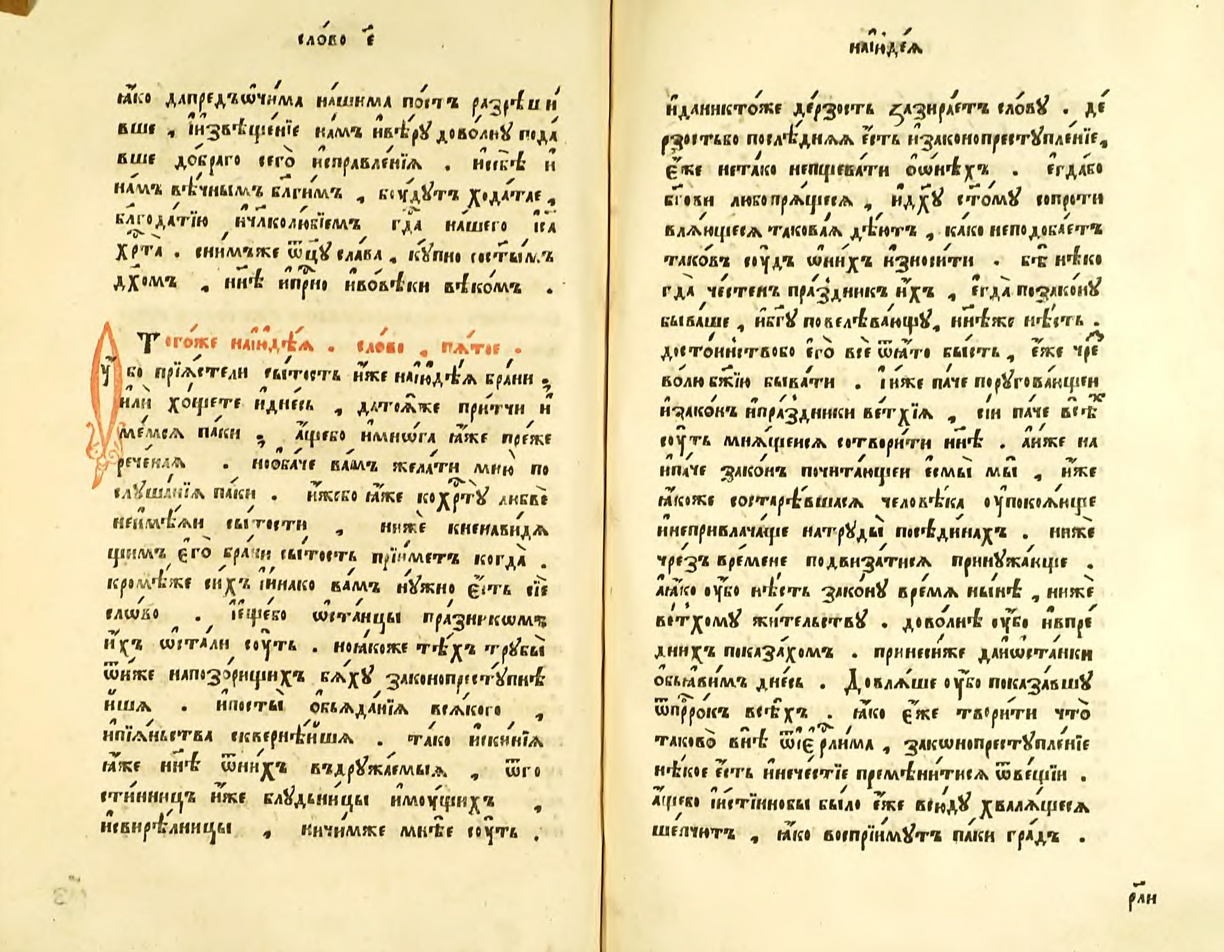 сло́во є҃
ꙗ҆́ко дапредъѡ҆чи́ма на́шима по́стъ разрѣши́
вше , и҆извѣще́нїе на́мъ и҆вѣ́рꙋ дово́лнꙋ пода́
вше до́браго сего̀ и҆справле́нїѧ . и҆себѣ̀ и҆
на́мъ вѣ́чнымъ бл҃ги́мъ , бꙋ́дꙋтъ хода́тає ,
бл҃года́тїю и҆чл҃колю́бїемъ гд҇а на́шего і҆с҃а
хр҇та̀ . сни́мъже ѿц҃ꙋ̀ сла́ва , кꙋ́пно состы҃мъ
дх҃омъ , нн҃ѣ и҆при҇но и҆вовѣ́ки вѣко́мъ .
Того́же наі҆ꙋдѣ́ѧ . сло́во , пѧ́тое .
Оу҆́бо прїѧ́стели сы́тость и҆́же наі҆ю҆дѣ́ѧ бра́ни ,
и҆лѝ хо́щете и҆дне́сь , дато́ѧже при́тчи и҆
ме́мсѧ па́ки , а҆́щебо и҆мнѡ́га ꙗ҆́же пре́же
рече́наѧ . нооба́че ва́мъ жела́ти мню̀ по
слꙋша́нїѧ па́ки . и҆́жебо ꙗ҆́же кохр҇тꙋ̀ любвѐ
неи҆мѣ́ѧи сы́тости , ниже́ кненави́дѧ
щимъ є҆го̀ бра́ни сы́тость прїи́метъ когда̀ .
кромѣ́же си́хъ и҆и҆на́ко ва́мъ нꙋ́жно є҆́сть сїѐ
сло́во . і҆еще́бо ѡ҆ста́нцы пра́зникѡмъ
и҆́хъ ѡ҆ста́ли сꙋ́ть . ноꙗ҆́коже тѣ́хъ трꙋбы̀
ѿни́же напозо́рищихъ бѧ́хꙋ законопрестꙋ́пнѣ
йшѧ . и҆по́сты̀ о҆бьѧда́нїѧ всѧ́кого ,
и҆пїѧ́ньства скве́рнѣйшѧ . та́ко и҆ски́нїѧ
ꙗ҆́же нн҃ѣ ѿни́хъ въдрꙋжа́емыѧ , ѿго
сти́нницъ и҆́же блꙋдни́цы и҆мꙋ́щихъ ,
и҆свирѣ́лницы , ничи́мже мнѣ́е сꙋ́ть .
наі҆ꙋде́ѧ
и҆дани́ктоже де́рзость зазира́етъ сло́вꙋ . де́
рзостьбо послѣ́днѧѧ є҆́сть и҆законопрестꙋпле́нїе,
є҆́же нета́ко непщева́ти о҆ѡ҆нѣ́хъ . є҆гда́бо
бг҃ови любопрѧ́щесѧ , и҆дх҃ꙋ ст҃о́мꙋ сопроти
влѧ́ющесѧ такова́ѧ дѣ́ютъ , ка́ко неподоба́етъ
тако́въ сꙋ́дъ ѡ҆ни́хъ и҆зноси́ти . бѣ̀ нѣ́ко
гда̀ че́стенъ пра́здникъ и҆́хъ , є҆гда̀ позако́нꙋ
быва́ше , и҆бг҃ꙋ повелѣва́ющꙋ, нн҃ѣже нѣ́сть .
досто́инствобо є҆го̀ всѐ ѿѧ́то бы́сть , є҆́же чре́з
во́лю бж҃їю быва́ти . и҆и҆́же па́че порꙋгова́ющеи
и҆зако́нъ и҆пра́здники ве́тхїѧ , сі́и па́че всѣ́х
сꙋ́ть мнѧ́щеисѧ сотвори́ти нн҃ѣ . а҆и҆́же на
ипа́че зако́нъ почита́ющеи є҆смы̀ мы̀ , и҆́же
ꙗ҆́коже состарѣ́вшасѧ человѣ́ка оу҆поко́ѧюще
и҆непривлача́ще натрꙋды̀ посѣди́нахъ . нижѐ
чре́зъ вре́мене подвиза́тисѧ принꙋжа́юще .
а҆ꙗ҆́ко оу҆́бо нѣ́сть зако́нꙋ вре́мѧ ны́нѣ , нижѐ
ве́тхомꙋ жи́тельствꙋ . дово́лнѣ оу҆́бо и҆впре́
днихъ показа́хомъ . принеси́же даи҆ѡ҆ста́нки
о҆бьꙗ́вимъ дне́сь . Довлѧ́ше оу҆́бо показа́вшꙋ
ѿпрⷪ҇ро́къ всѣ́хъ . ꙗ҆́ко є҆́же твори́ти что̀
таково̀ внѣ̀ ѿі҆е҆рⷭ҇ли́ма , закѡнопрестꙋпле́нїе
нѣ́кое є҆́сть и҆нече́стїе премѣни́тисѧ ѿве́щїи .
а҆́щебо и҆и҆́стїннобы бы́ло є҆́же всю́дꙋ хвалѧ́щесѧ
ше́пчютъ , ꙗ҆́ко восприи́мꙋтъ па́ки гра́дъ .
рл҃и